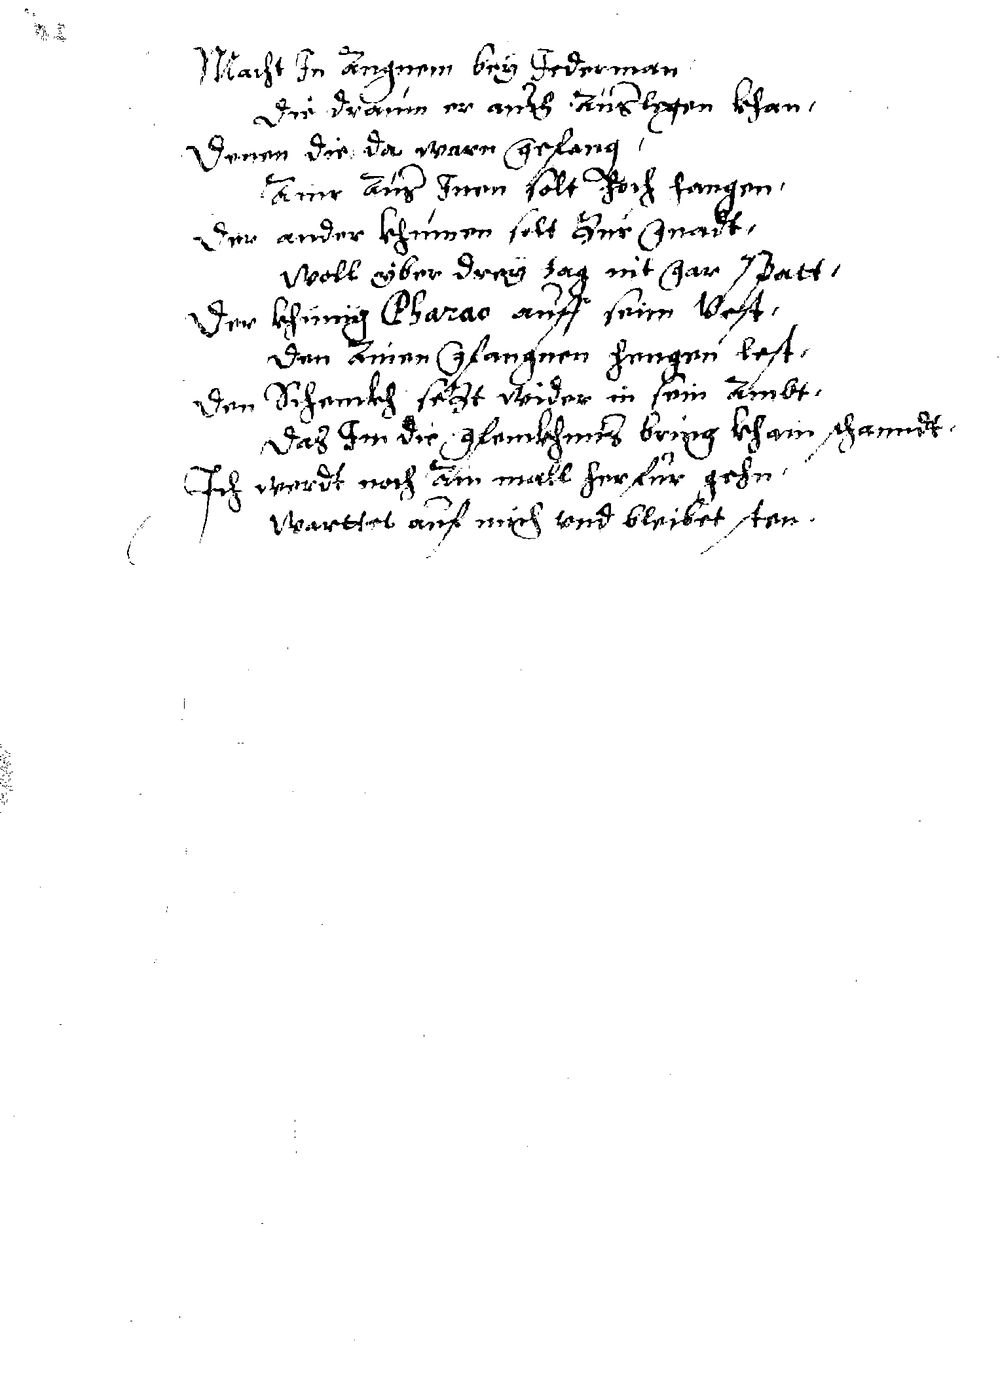 Macht In Angnem bey Jederman
Die draum er auch Auslegen khan,
Denen die da warn gefang,
Ainr Aus Inen solt hoch hangen,
Der ander khumen solt Zur gnadt,
Woll yber drey tag nit gar spatt,
Der khunig Pharao auff seim Vest,
Den Ainen gfangnen hengen lest,
Den Schenckh setzt wider in sein Ambt,
Das Im die gfenkhnus bring khain schanndt,
Ich werdt noch Ain mall herfür gehn,
Warttet auf mich vnd bleibet sten.